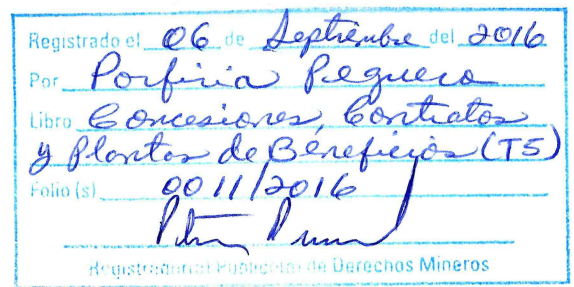 Registrado el 06 de Septiembre del 2016
Por Porfiria Peguero
Libro Concesiones, Contratos
y Plantas de Beneficios (T5)
Folio (s) 0011/2016
Registrador(a) Publico(a) de Derechos Mineros